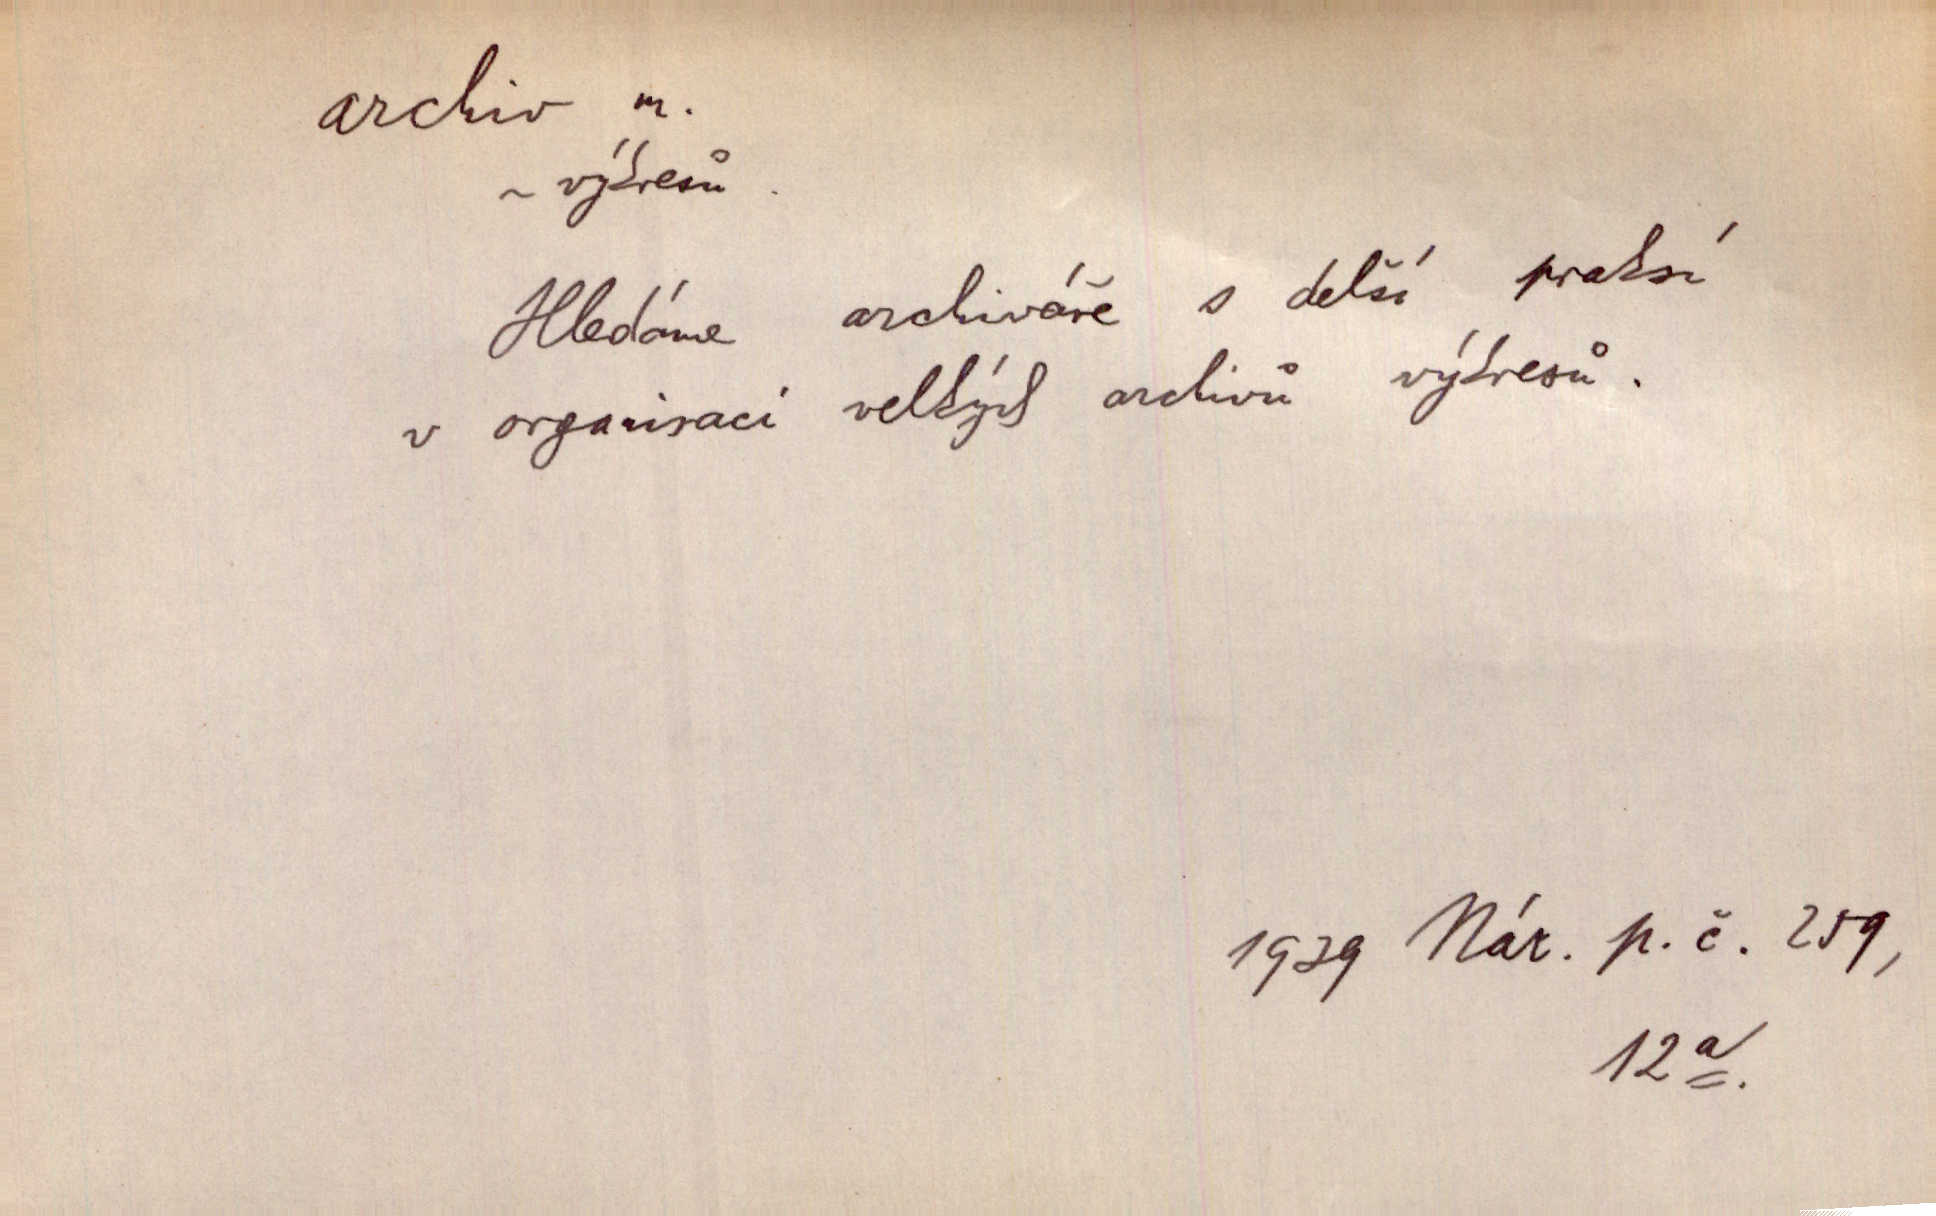 archiv m.
~ výkresů.
Hledáme archiváře s delší praksí
v organisaci velkých archivů výkresů.
1939 Nár. p. č. 259,
12a.